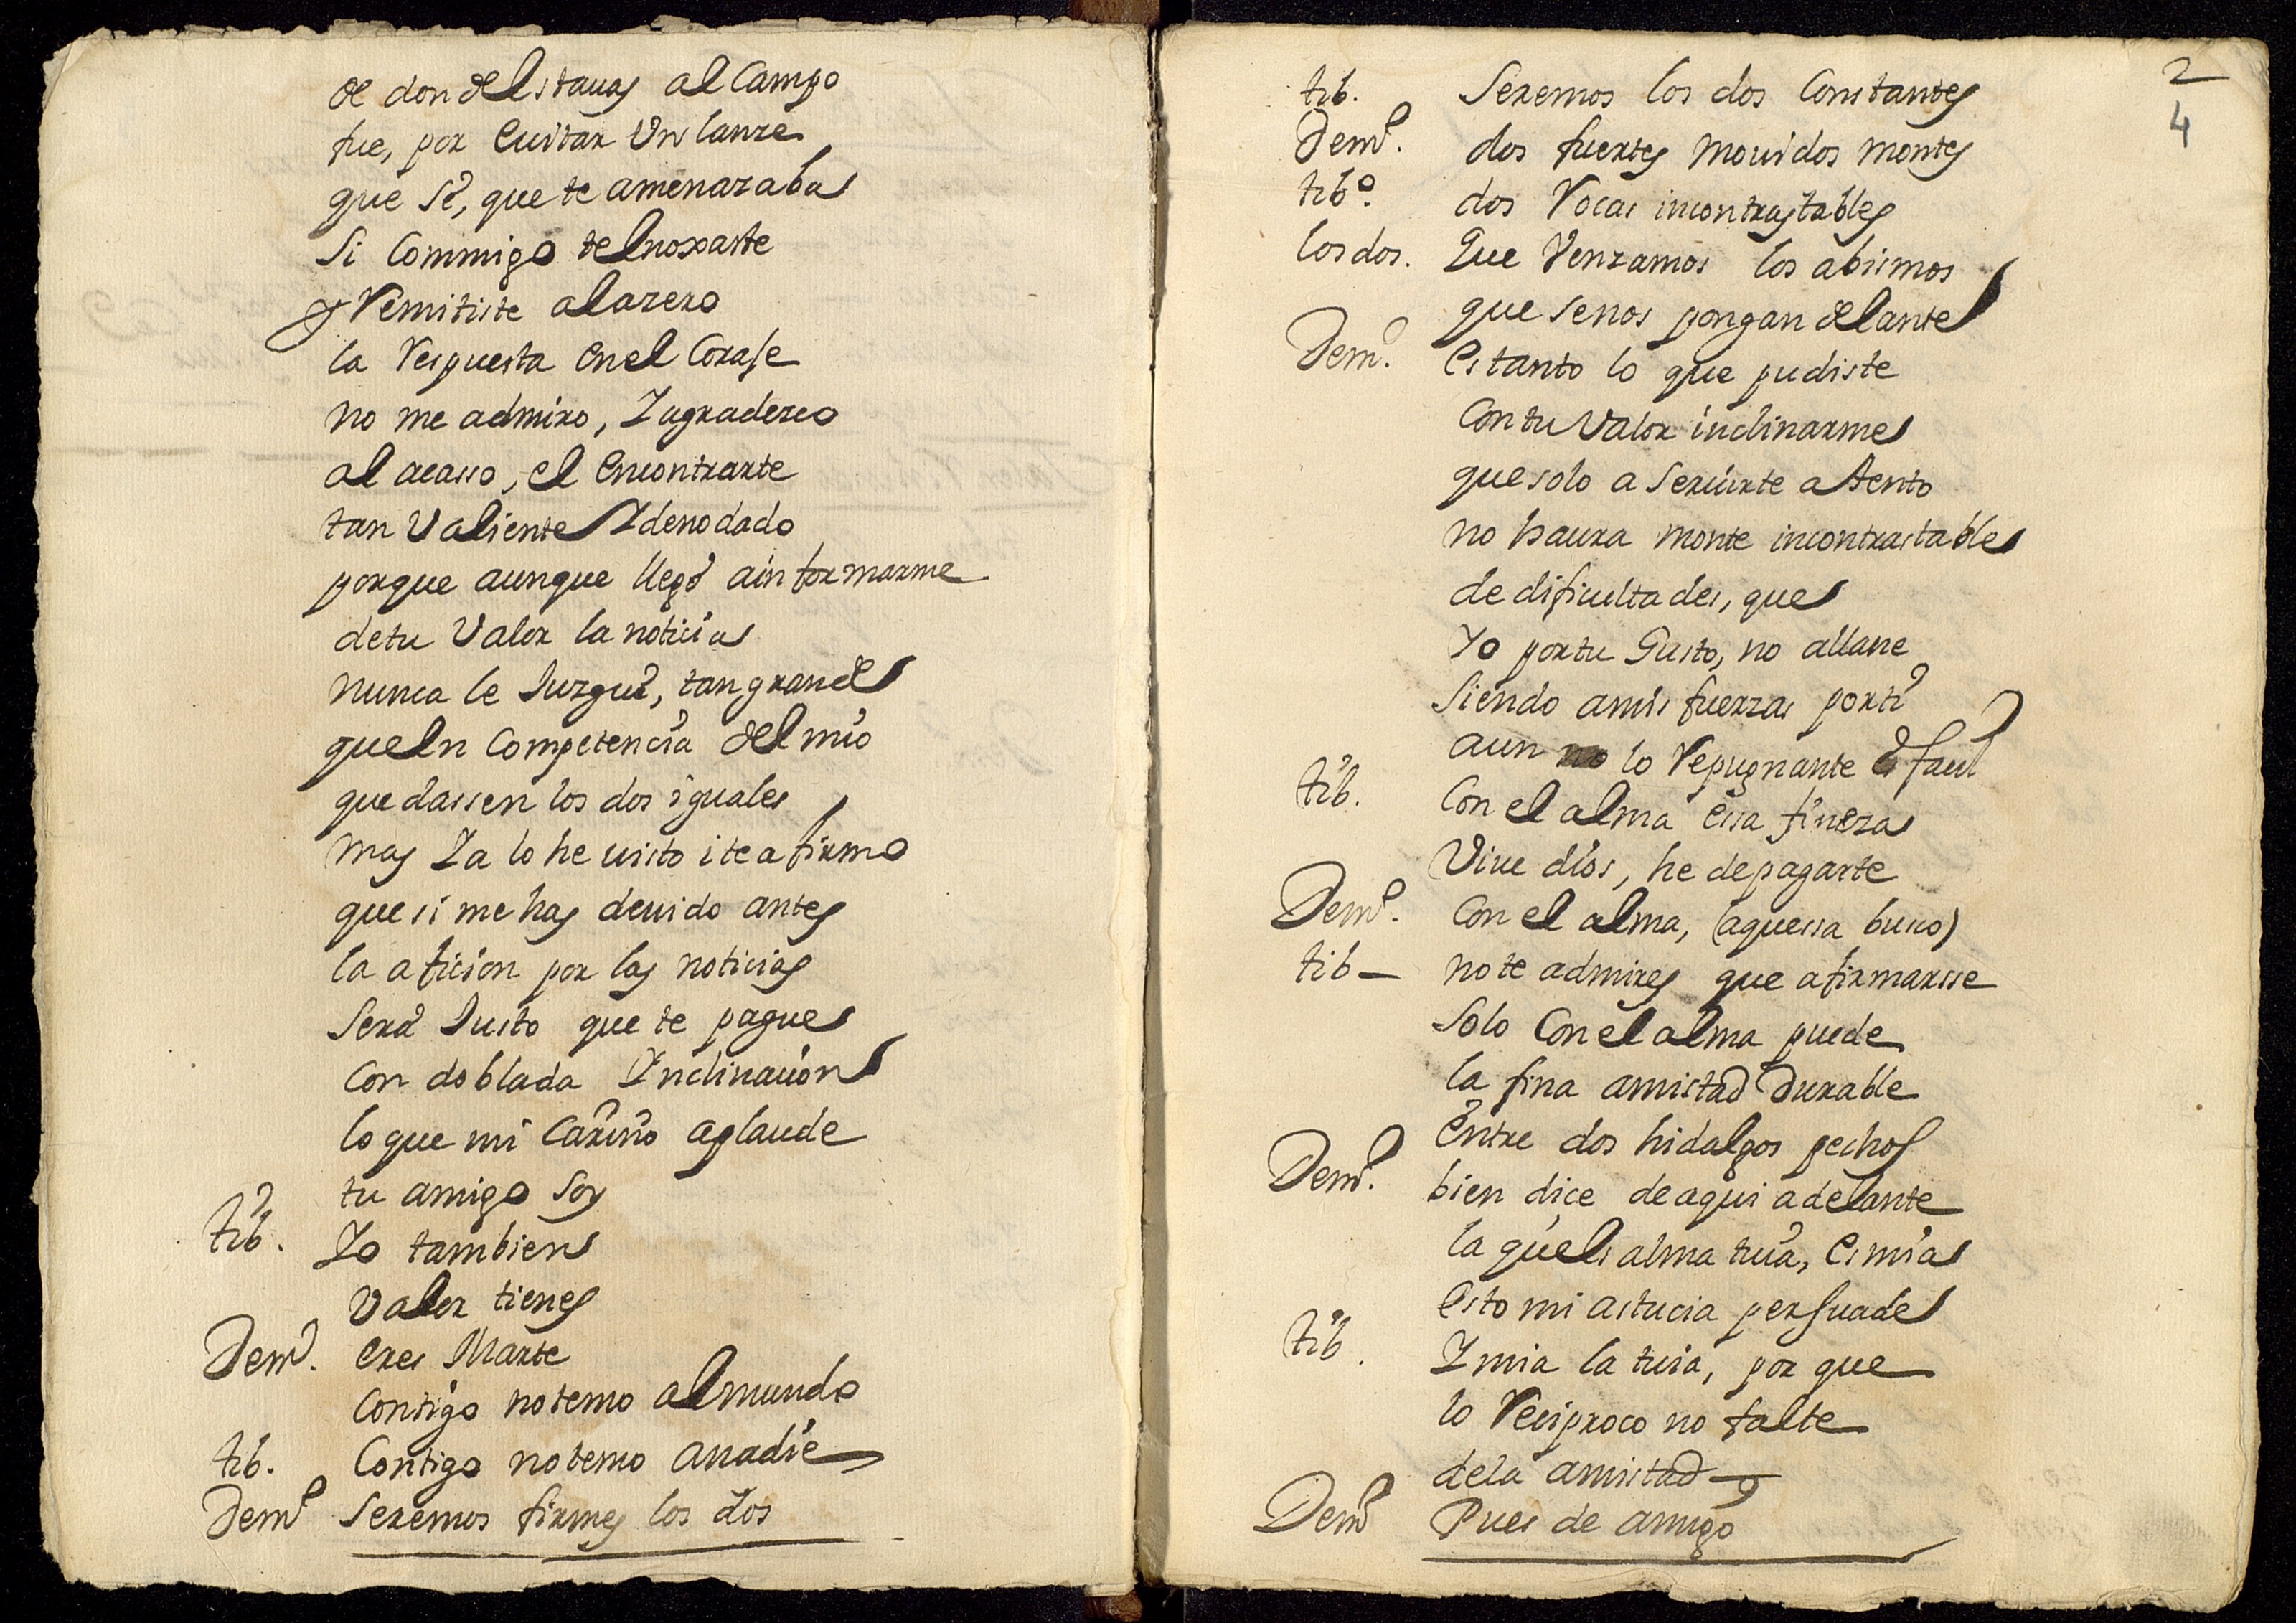 de donde Estauas al Campo
fue, por Euitar Un lanze
que sè, que te amenazaba
Si Commigo te Enoxaste
y Remitiste al azero
la Respuesta en el Coraje
no me admiro, Y agradezco
al acasso, el Encontrarte
tan Valiente Y denodado
porque aunque llegò a informarme
de tu Valor la noticia
nunca le Juzguè, tan grande
que En Competencia del mio
quedassen los dos iguales
mas Ya lo he uisto i te afirmo
que si me has deuido antes
la aficion por las noticias
Serà Justo que te pague
Con doblada Inclinacion
lo que mi Cariño aplaude
tu amigo Soy
tib. Yo tambien
Valor tienes
Demo. Eres Marte
Contigo no temo al mundo
tib. Contigo no temo a nadie
Demo Seremos firmes los dos
2
4
tib. Seremos los dos Constantes
Demo. dos fuertes mouidos montes
tibo. dos Rocas incontrastables
los dos. Que Venzamos los abismos
que se nos pongan delante
Demo. Es tanto lo que pudiste
Con tu Valor inclinarme
que solo a Seruirte atento
no haura monte incontrastable
de dificultades, que
Yo por tu Gusto, no allane
Siendo a mis fuerzas por ti
aun lo Repugnante es facil
tib. Con el alma essa fineza
Viue dios, he de pagarte
Demo. Con el alma, (aquessa busco)
tib— no te admires que afirmarsse
Solo Con el alma puede
la fina amistad Durable
Entre dos hidalgos pechos
Demo. bien dice de aqui adelante
la que Es alma tuia, Es mia
Esto mi astucia persuade
tib. Y mia la tuia, por que
lo Reciproco no falte
de la amistad—
Demo Pues de amigo